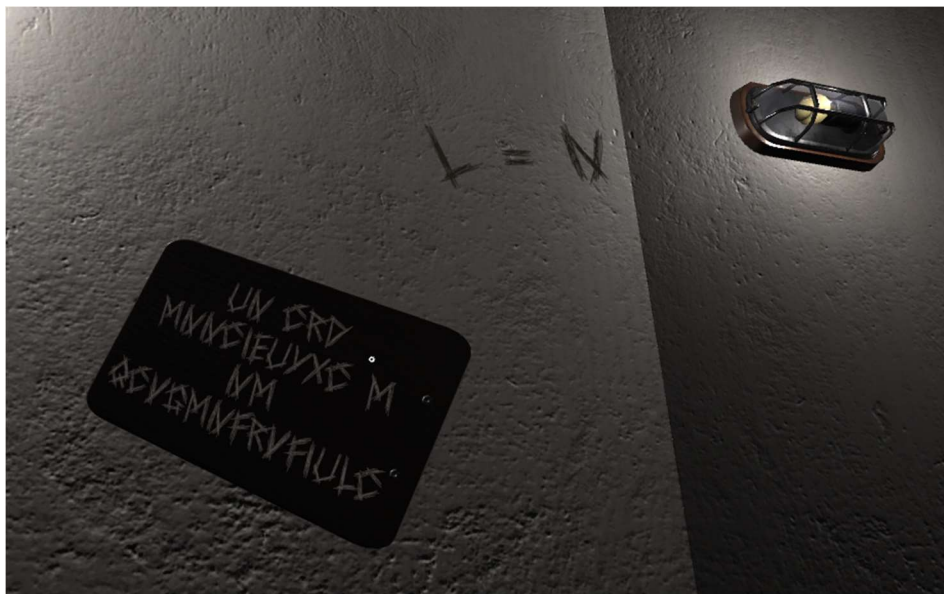 L = N
UN CRD
MNNCIEUYXC M
NM
QCVGMNFRVFIULC